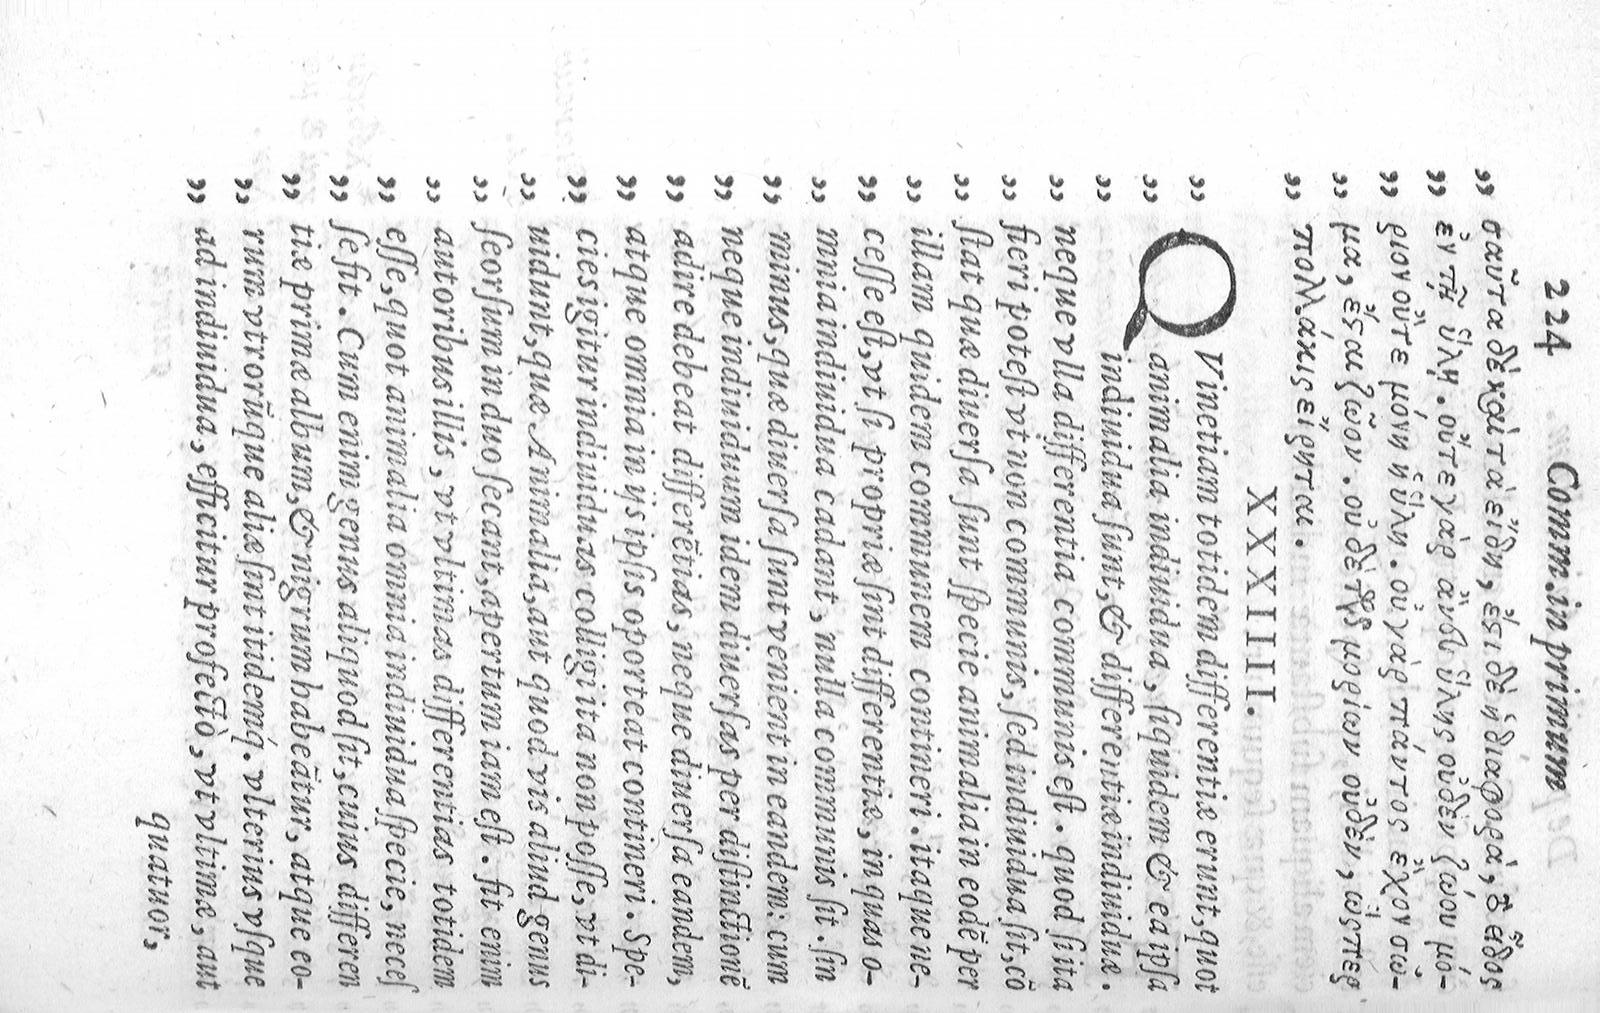 224 Comm. in primum
„ σαῦτα δὲ καὶ τὰ εἴδη, ἔςι δὲ ἡ διαφορὰ, ὃ εἶδος
„ ἐν τῇ ὕλῃ. οὔτε γὰρ ἄνευ ὕλης οὐδὲν ζώου μό-
„ ριον οὔτε μόνη ἡ ὕλη. οὐ γὰρ πάντος ἔχον σῶ-
„ μα, ἔςαι ζῶον. οὐ δὲ τῶν μορίων οὐδὲν, ὥσπερ
„ πολλάκις εἴρηται.
XXXIIII.
„ QVinetiam totidem differentiæ erunt, quot
„ animalia indiuidua, siquidem & ea ipsa
„ indiuidua sunt, & differentiæ indiuiduæ.
„ neque vlla differentia communis est. quod si ita
„ fieri potest vt non communis, sed indiuidua sit, cō
„ stat quæ diuersa sunt specie animalia in eodē per
„ illam quidem communem contineri. itaque ne-
„ cesse est, vt si propriæ sint differentiæ, in quas o-
„ mnia indiuidua cadant, nulla communis sit. sin
„ minus, quæ diuersa sunt venient in eandem: cum
„ neque indiuiduum idem diuersas per distinctionē
„ adire debeat differētias, neque diuersa eandem,
„ atque omnia in ijs ipsis oporteat contineri. Spe-
„ cies igitur indiuiduas colligi ita non posse, vt di-
„ uidunt, quæ Animalia, aut quod vis aliud genus
„ seorsum in duo secant, apertum iam est. fit enim
„ autoribus illis, vt vltimas differentias totidem
„ esse, quot animalia omnia indiuidua specie, necess
„ se sit. Cum enim genus aliquod sit, cuius differen
„ tiæ primæ album, & nigrum habeātur, atque eo-
„ rum vtrorūque aliæ sint itidemq́. vlterius vsque
„ ad indiuidua, efficitur profectò, vt vltimæ, aut
quatuor,